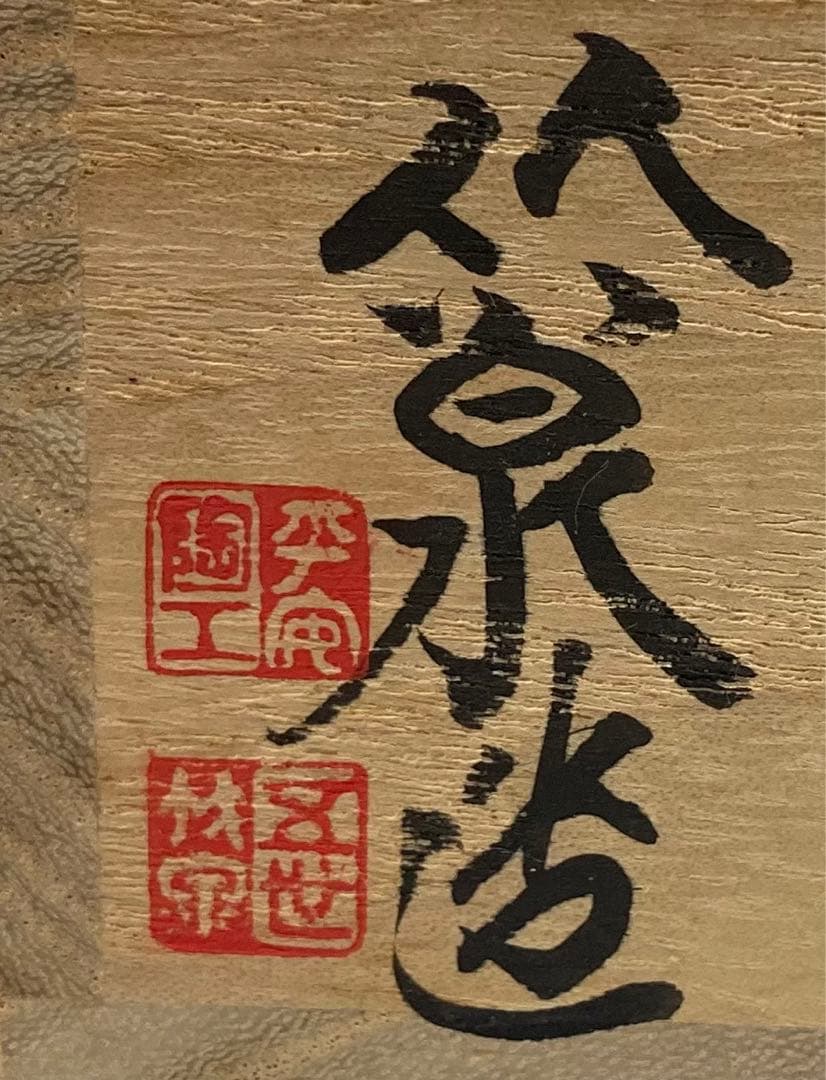 竹泉造
平安
陶工
五世
竹泉